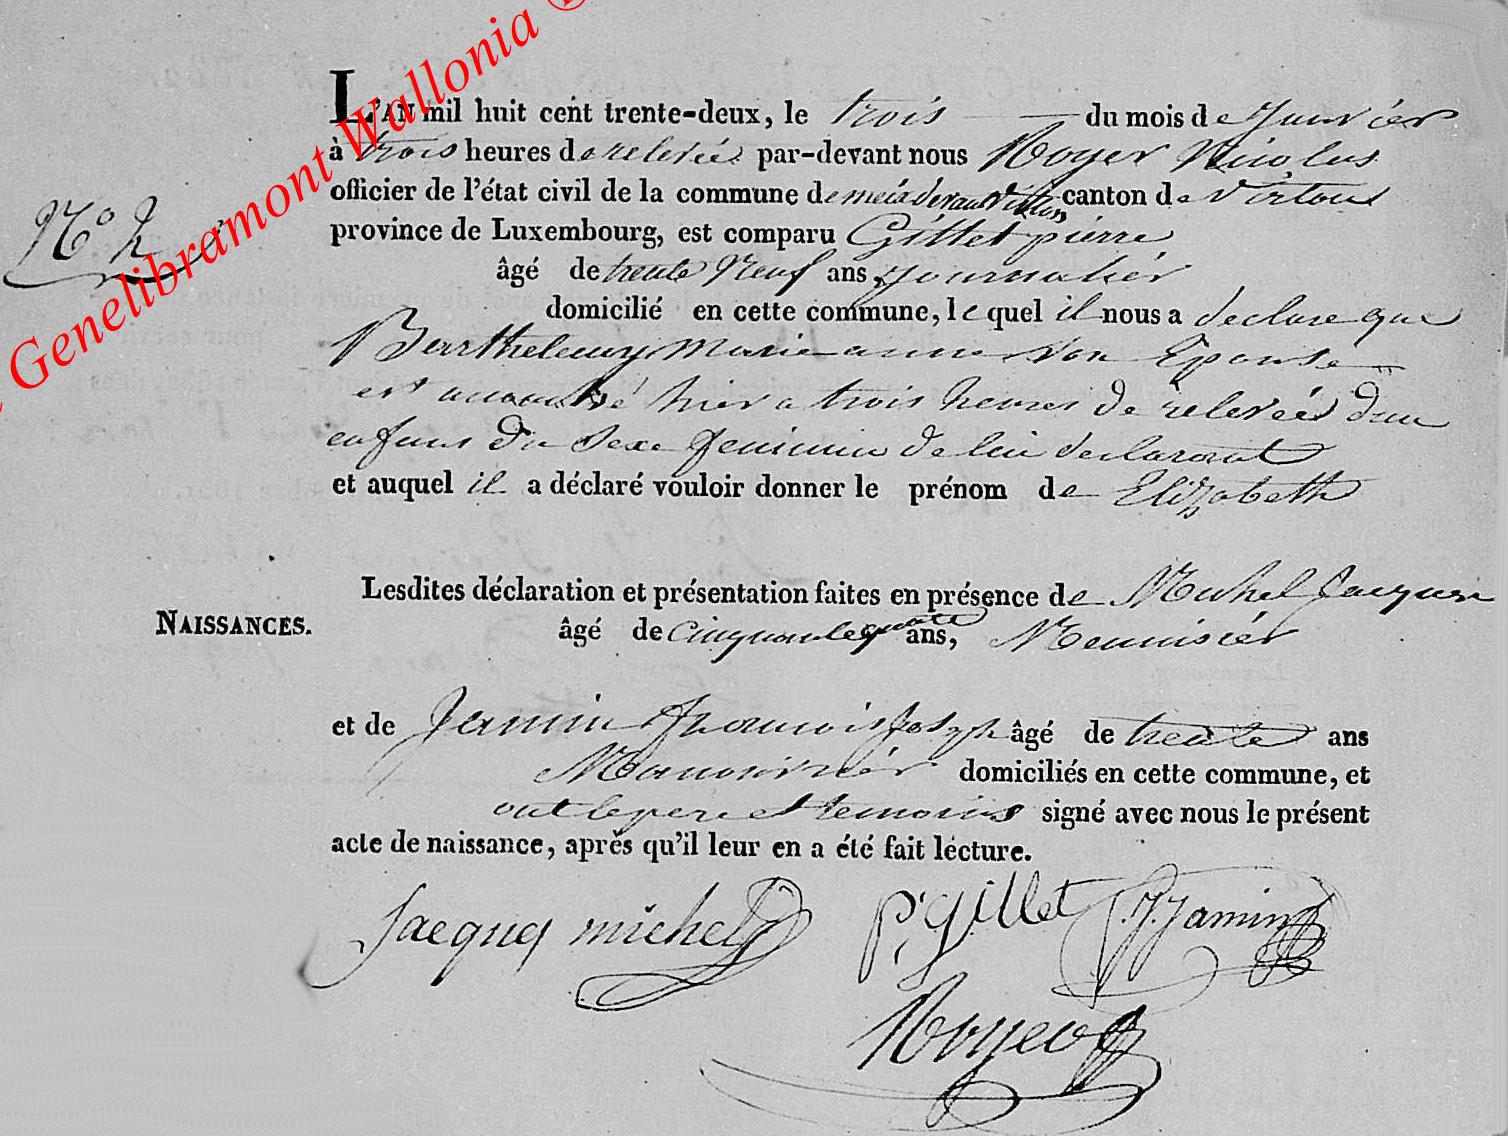 Genelibramont Wallonia ©
L'AN mil huit cent trente-deux, le trois du mois de Janvier
à trois heures de relevée par-devant nous Noyer Nicolas
officier de l'état civil de la commune de meix devant Virton canton de Virton
province de Luxembourg, est comparu Gillet pierre
âgé de trente Neuf ans, journalier
domicilié en cette commune, lequel il nous a declare que
Barthelemy marie anne son Epouse
est accouché hier a trois heures de relevées d'un
enfant du sexe feminin de lui declarant
et auquel il a déclaré vouloir donner le prénom de Elizabeth
Lesdites déclaration et présentation faites en présence de Michel Jacques
NAISSANCES.
âgé de cinquante quatre ans, Menuisier
et de Jamin francois Joseph âgé de trente ans
Manouvrier domiciliés en cette commune, et
ont le pere et temoins signé avec nous le présent
acte de naissance, après qu'il leur en a été fait lecture.
Jacques michel P. Gillet f.J. Jamin
Noyer